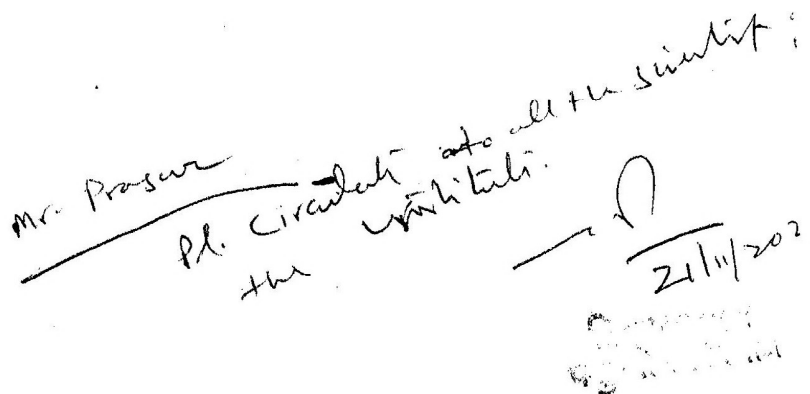 Mr. Prasar
Pl. Circulate to all the scientist
the institute.
21/11/202